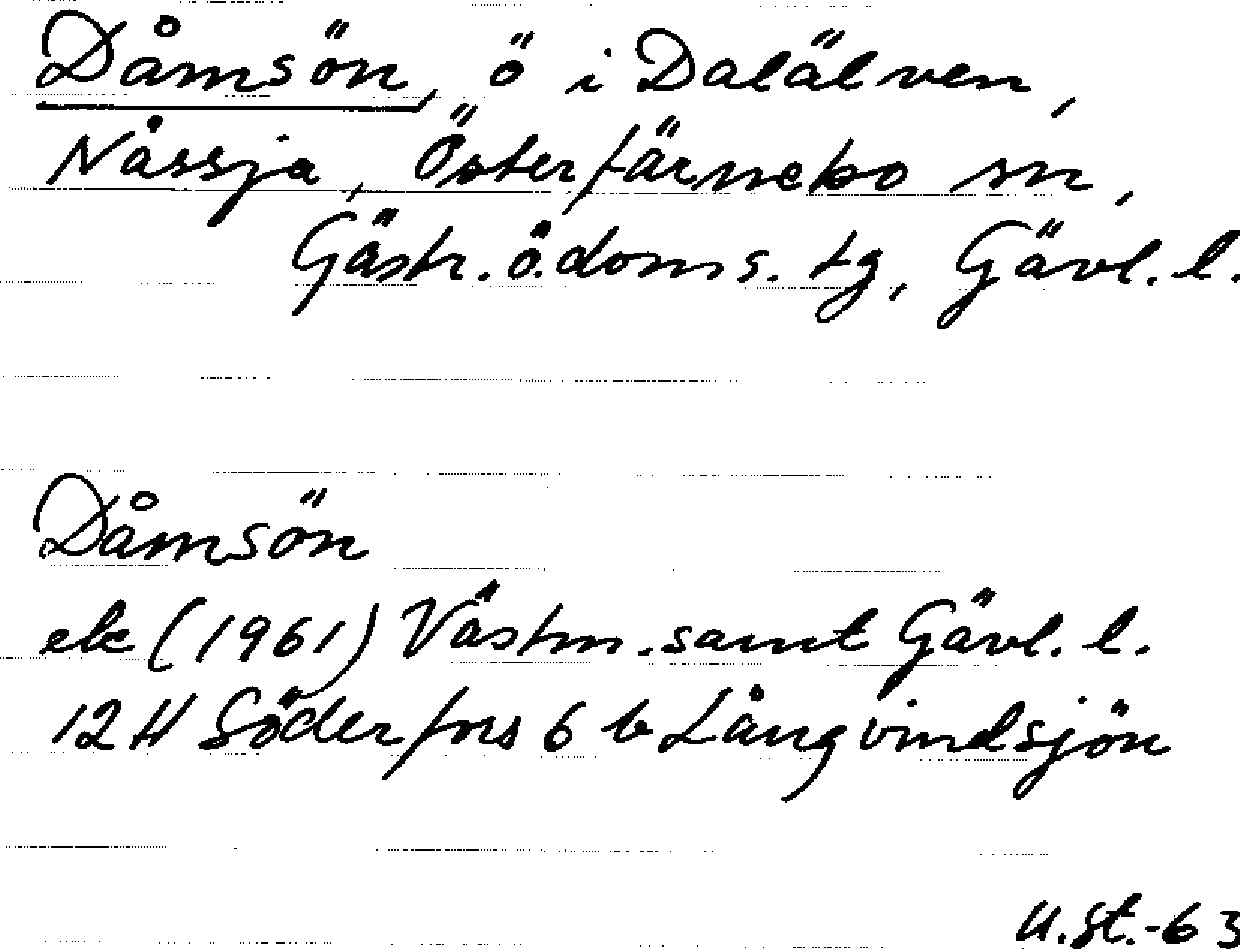 Dåmsön, ö i Dalälven,
Nässja, Österfärnebo sn,
Gästr. ö. doms. tg, Gävl. l.
Dåmsön
ek (1961) Västm. samt Gävl. l.
12 H Söderfors 6 b Långvindsjön
U.St.-63